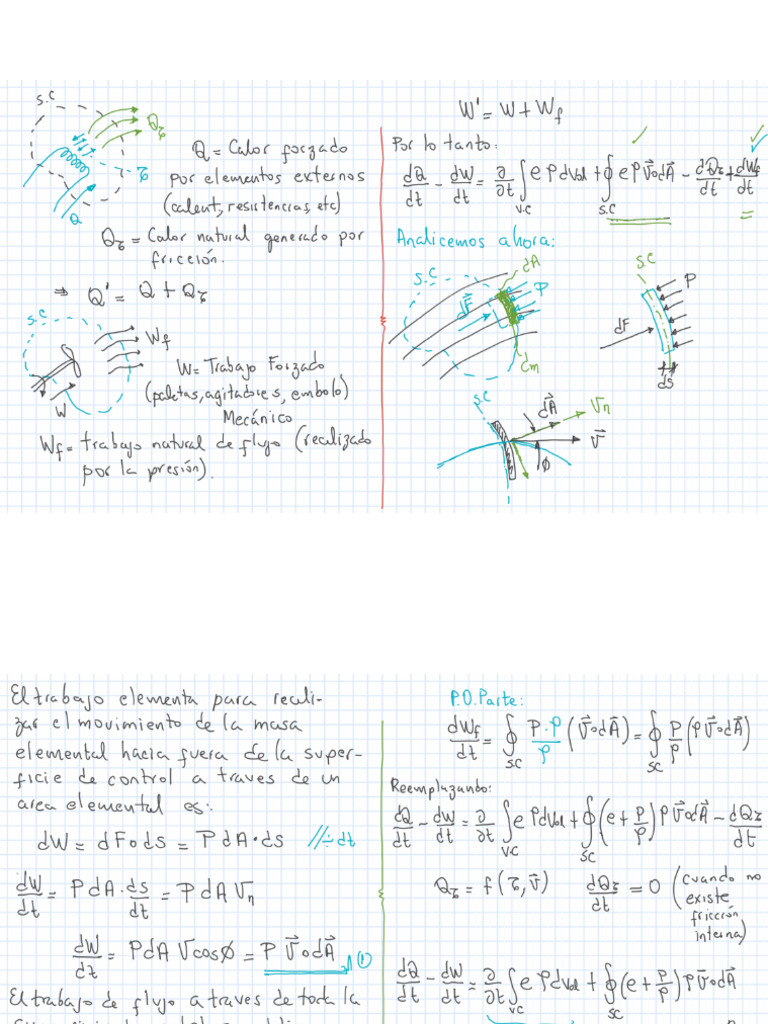 S.C
Qτ
τ
Q
Q = Calor forzado
por elementos externos
(calent, resistencias, etc)
Qτ = Calor natural generado por
fricción.
⇒ Q' = Q + Qτ
S.C
Wf
W
W = Trabajo Forzado
(paletas, agitadores, embolo)
Mecánico
Wf = trabajo natural de flujo (realizado
por la presión).
W' = W + Wf
Por lo tanto:
dQ/dt - dW/dt = ∂/∂t ∫v.c eρdVol + ∮s.c eρV⃗∘dA⃗ - dQτ/dt + dWf/dt
Analicemos ahora:
S.C
dA
P
dF⃗
dm
S.C
P
dF
ds
S.C
dA⃗
Vn
V⃗
ϕ
El trabajo elementa para reali-
zar el movimiento de la masa
elemental hacia fuera de la super-
ficie de control a traves de un
area elemental es:
dW = dF∘ds = PdA·ds //÷dt
dW/dt = PdA·ds/dt = PdA Vn
dW/dt = PdA Vcosϕ = P V⃗∘dA⃗ ①
El trabajo de flujo a traves de toda la
P.O.Parte:
dWf/dt = ∮sc P·ρ/ρ (V⃗∘dA⃗) = ∮sc P/ρ (ρV⃗∘dA⃗)
Reemplazando:
dQ/dt - dW/dt = ∂/∂t ∫vc eρdVol + ∮sc (e + P/ρ) ρV⃗∘dA⃗ - dQτ/dt
Qτ = f(τ, V⃗) dQτ/dt = 0 (cuando no
existe
fricción
interna)
dQ/dt - dW/dt = ∂/∂t ∫vc eρdVol + ∮sc (e + P/ρ) ρV⃗∘dA⃗